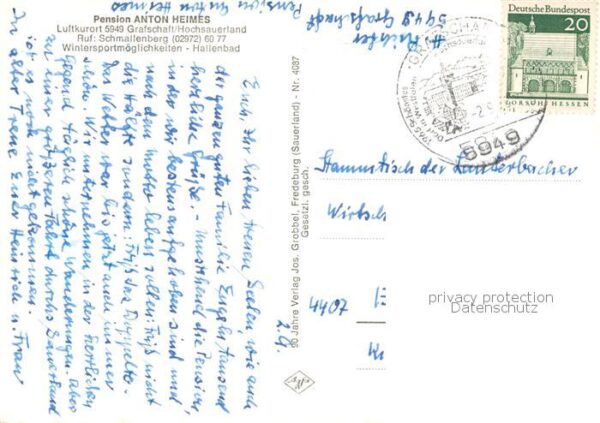 Pension ANTON HEIMES
Luftkurort 5949 Grafschaft/Hochsauerland
Ruf: Schmallenberg (02972) 60 77
Wintersportmöglichkeiten - Hallenbad
2.9.
Euch, Ihr lieben, treuen Seelen wie auch
der ganzen guten Familie Engeln tausend
herzliche Grüße. - Umstehend die Pension,
in der wir bestens aufgehoben sind und
nach dem Motto leben sollen: Friß nicht
die Hälfte sondern Friß das Doppelte.
Das Wetter war bis jetzt auch immer
schön. Wir unternehmen in der herrlichen
Gegend täglich schöne Wanderungen. Aber
zu einer größeren Fahrt durchs Sauerland
ist es noch nicht gekommen.
In alter Treue Euer Heinrich u. Frau
H. Richter
5949 Grafschaft
Pension Anton Heimes
20 Jahre Verlag Jos. Grobbel, Fredeburg (Sauerland) - Nr. 4087
Gesetzl. gesch.
5949
DEUTSCHE BUNDESPOST
20
LORSCH/HESSEN
Stammtisch der Lauterbacher
Wirtsch
4407
privacy protection
Datenschutz